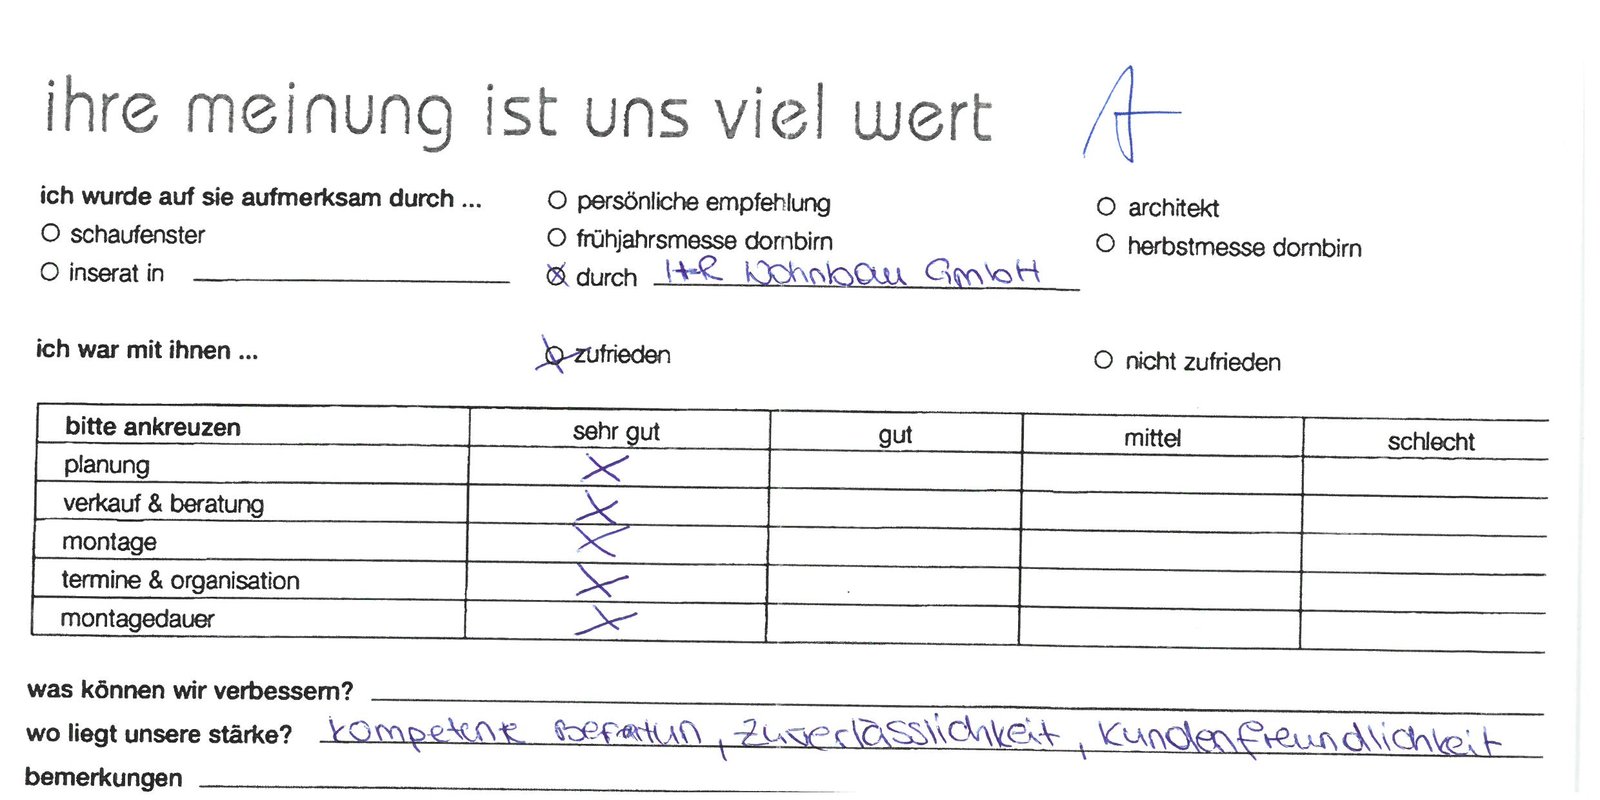 ihre meinung ist uns viel wert A
ich wurde auf sie aufmerksam durch ... persönliche empfehlung architekt
schaufenster frühjahrsmesse dornbirn herbstmesse dornbirn
inserat in durch I+R Wohnbau GmbH
ich war mit ihnen ... zufrieden nicht zufrieden
bitte ankreuzen sehr gut gut mittel schlecht
planung X
verkauf & beratung X
montage X
termine & organisation X
montagedauer X
was können wir verbessern?
wo liegt unsere stärke? kompetente Beratun, Zuverlässlichkeit, Kundenfreundlichkeit
bemerkungen